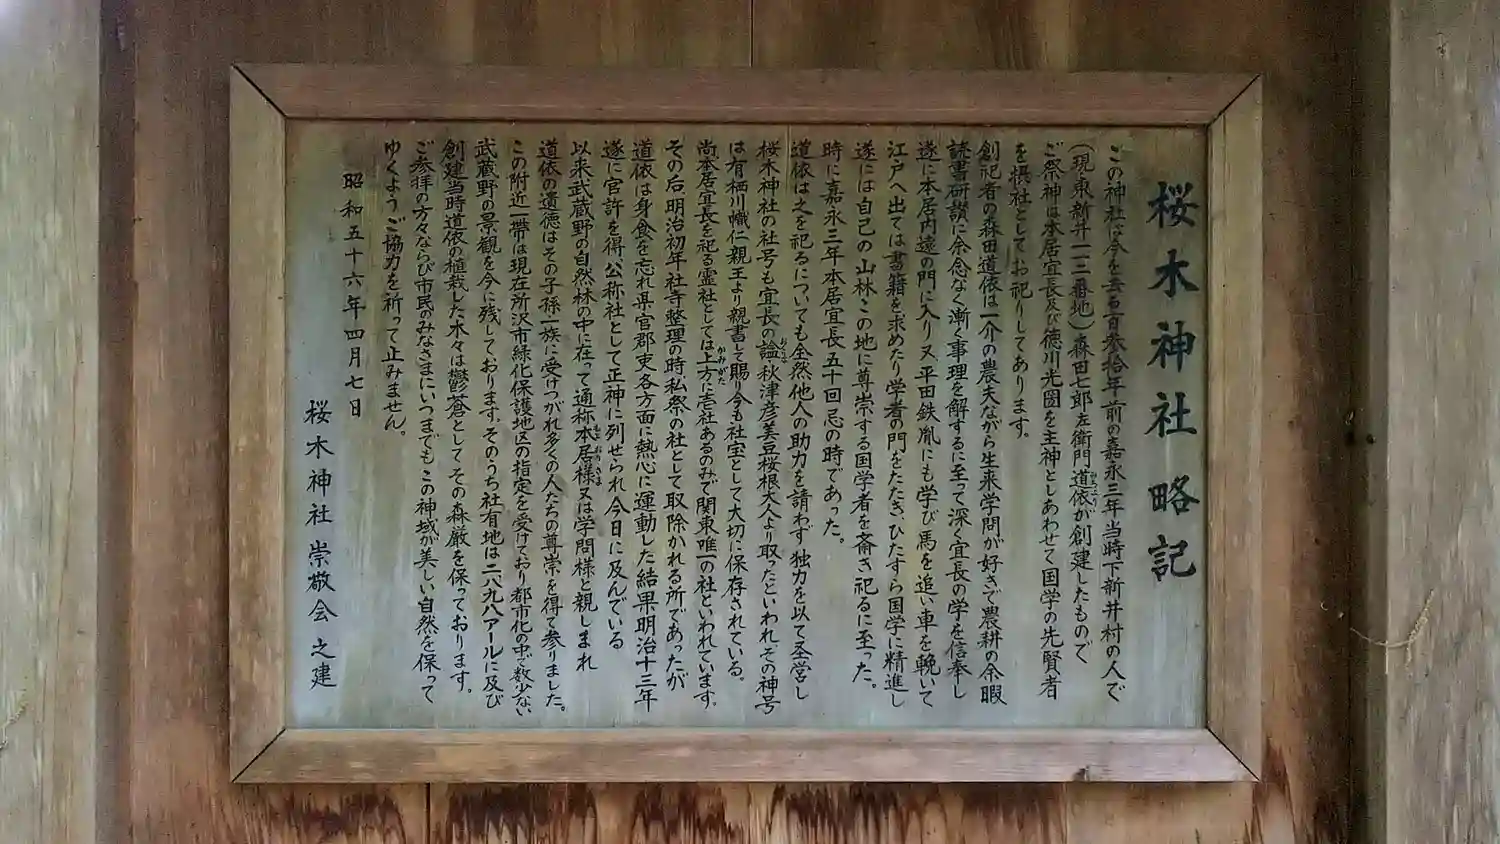 桜木神社略記
この神社は今を去る百参拾年前の嘉永三年当時下新井村の人で
（現東新井一二番地）森田七郎左衛門道依が創建したもので
ご祭神は本居宣長及び徳川光圀を主神としあわせて国学の先賢者
を摂社としてお祀りしてあります。
創祀者の森田道依は一介の農夫ながら生来学問が好きで農耕の余暇
読書研鑚に余念なく漸く事理を解するに至って深く宣長の学を信奉し
遂に本居内遠の門に入り又平田鉄胤にも学び馬を追い車を輓いて
江戸へ出ては書籍を求めたり学者の門をたたき、ひたすら国学に精進し
遂には自己の山林この地に尊崇する国学者を斎き祀るに至った。
時に嘉永三年本居宣長五十回忌の時であった。
道依は之を祀るについても全然他人の助力を請わず独力を以て丕営し
桜木神社の社号も宣長の諡・秋津彦美豆桜根大人より取ったといわれその神号
は有栖川幟仁親王より親書して賜り今も社宝として大切に保存されている。
尚本居宣長を祀る霊社としては上方に壱社あるのみで関東唯一の社といわれています。
その后、明治初年社寺整理の時、私祭の社として取除かれる所であったが
道依は身食を忘れ県官郡吏各方面に熱心に運動した結果明治十三年
遂に官許を得公称社として正神に列せられ今日に及んでいる
以来武蔵野の自然林の中に在って通称本居様又は学問様と親しまれ
道依の遺徳はその子孫一族に受けつがれ多くの人たちの尊崇を得て参りました。
この附近一帯は現在所沢市緑化保護地区の指定を受けており都市化の中で数少ない
武蔵野の景観を今に残しております。そのうち社有地は二八九八アールに及び
創建当時道依の植栽した木々は鬱蒼としてその森厳を保っております。
ご参拝の方々ならび市民のみなさまにいつまでもこの神域が美しい自然を保って
ゆくようご協力を祈って止みません。
昭和五十六年四月七日
桜木神社崇敬会之建